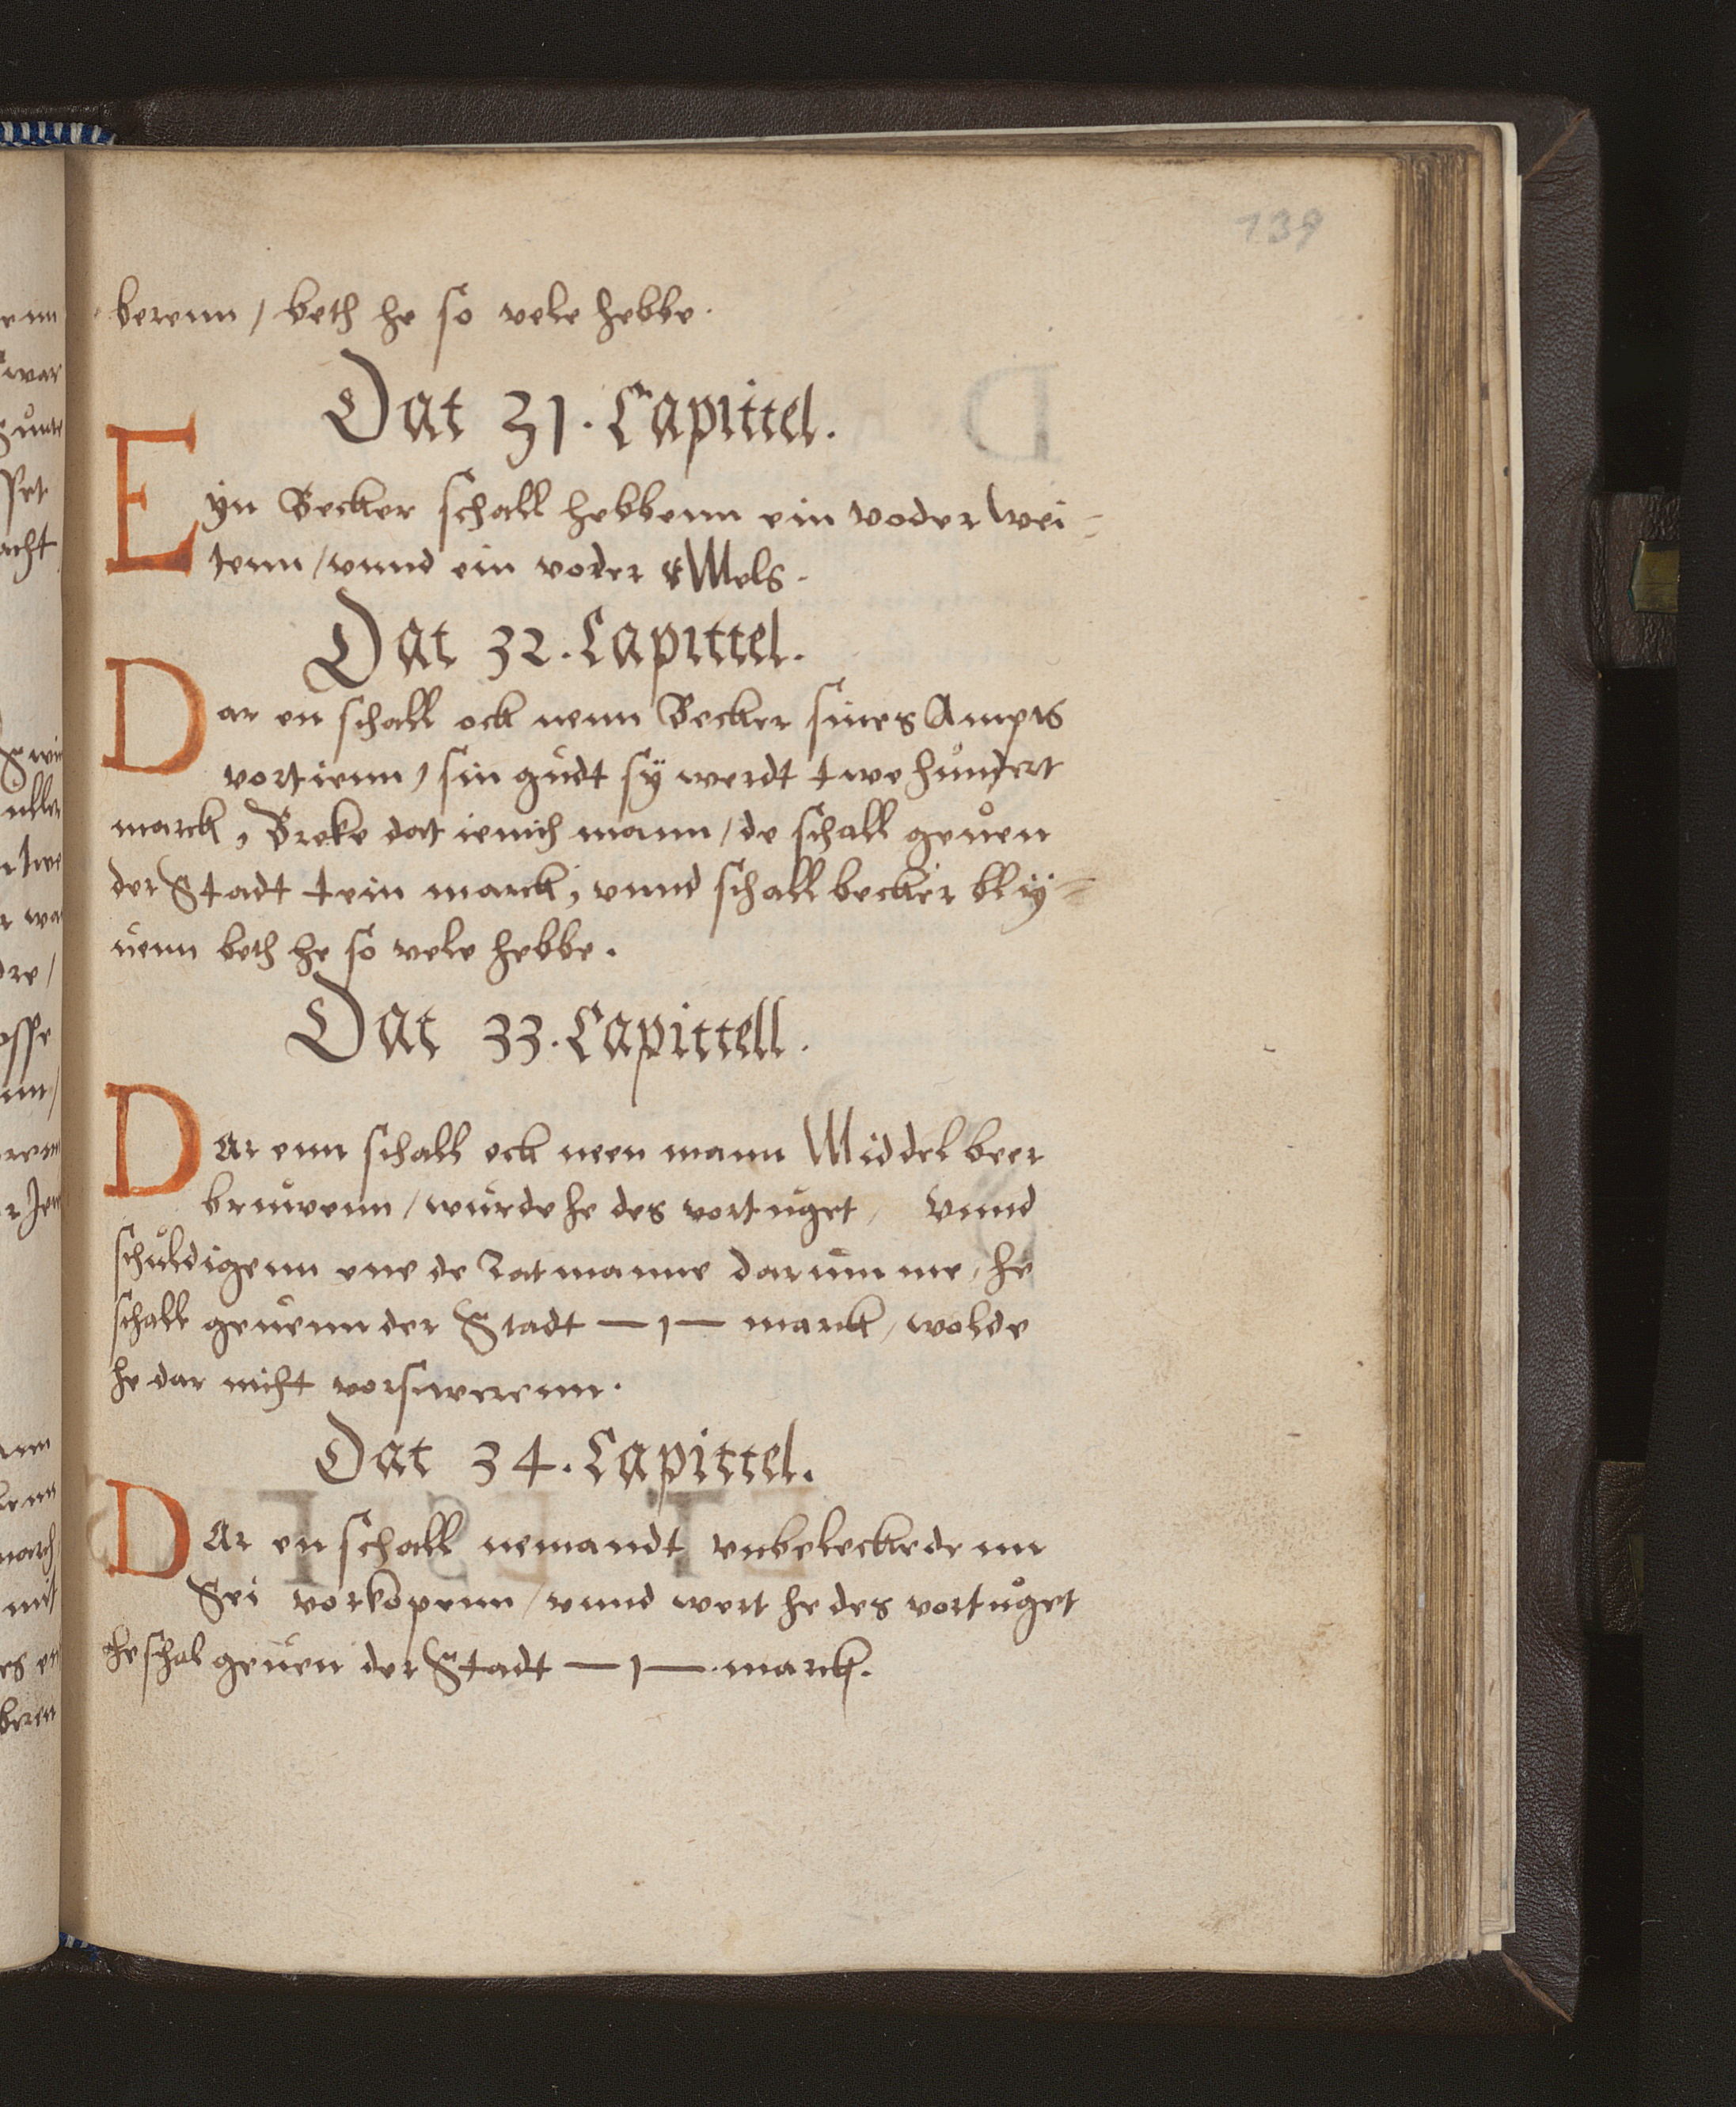 139
berenn / beth he so vele hebbe.
Dat 31. Capittel.
Eyn Becker schall hebbenn ein voder Wei=
tenn / vnnd ein voder Mels.
Dat 32. Capittel.
Dar en schall ock nenn Becker sines Ampts
vortienn / sin gudt sÿ werdt twe hundert
marck, Breke dat ienich mann / de schall geuen
der Stadt tein marck, vnnd schall becker blÿ=
uenn beth he so vele hebbe.
Dat 33. Capittell.
DAr enn schall ock neen mann Middel beer
bruwenn / wurde he des vortuget / Vnnd
schuldigenn ene de Ratmanne darumme, he
schall geuenn der Stadt — 1 — marck, wolde
he dar nicht vorswerenn.
Dat 34. Capittel.
DAr en schall nemandt vnbeleckedenn
Sei vorkopenn / vnnd wert he des vortuget
he schal geuen der Stadt — 1 — marck.